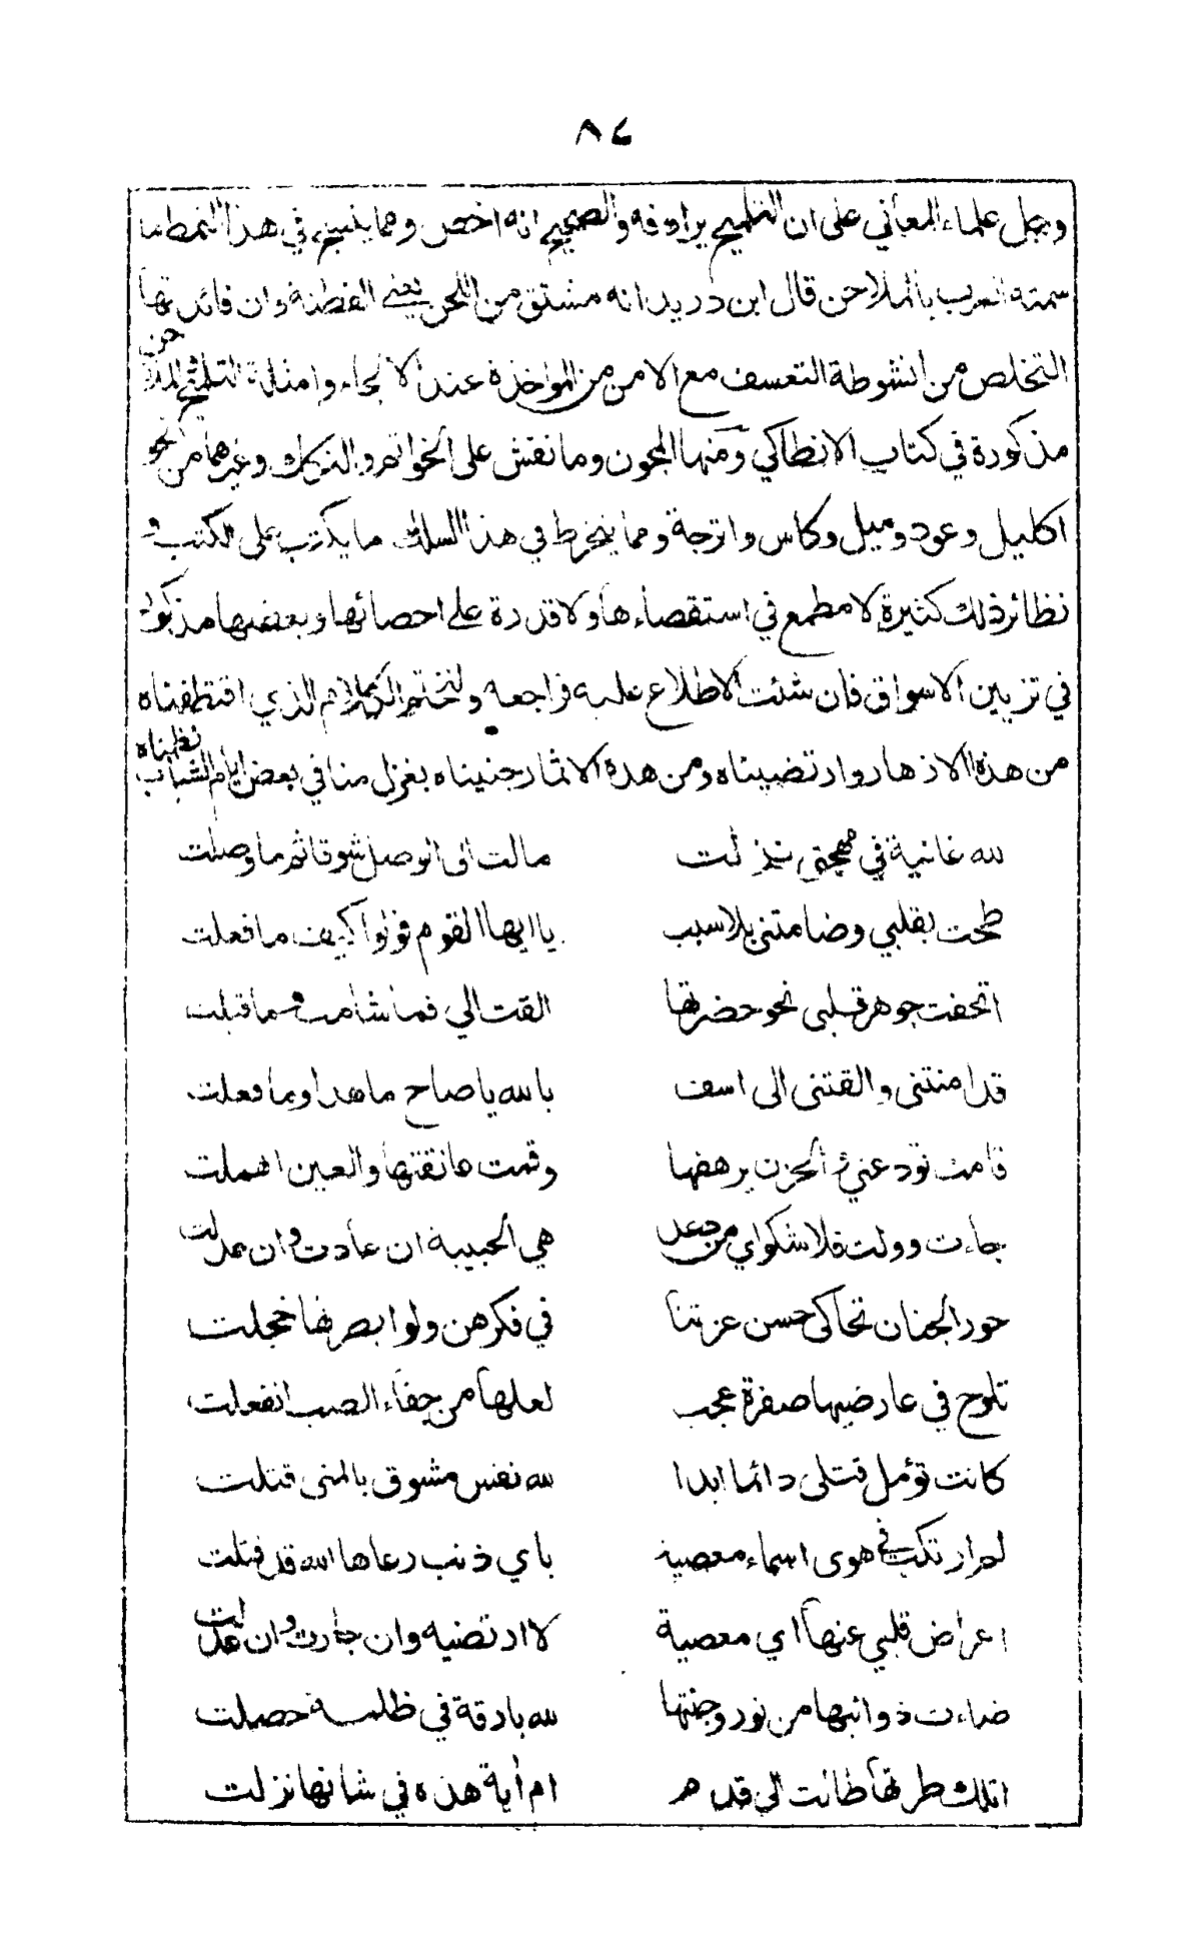 ٨٤
وجل علماء المعاني على ان التلميح يرادفه والصحيح انه اخص ومما ينسج في هذا النمط ما
سمته العرب بالملاحن قال ابن دريد انه مشتق من اللحن يعني الفطنة وان فائدتها
التخلص من انشوطة التعسف مع الامن من المواخذة عند الالجاء وامثلة التلميح
مذكورة في كتاب الانطاكي ومنها المجون وما نقش على الخواتم و وغيرهما من نحو
اكليل وعود وميل وكاس واترجة ومما ينخرط في هذا السلك ما يكتب على الكتب و
نظائر ذلك كثيرة لا مطمع في استقصاءها ولا قدرة على احصائها وبعضها مذكور
في تزيين الاسواق فان شئت الاطلاع عليه فراجعه ولنختم الكلام الذي اقتطفناه
من هذه الازهار وارتضيناه ومن هذه الاثمار جنيناه بغزل منا في بعض ايام الشباب نظمناه
لله غانية في مهجتي نزلت مالت الى الوصل شوقا ثم ما وصلت
طمحت بقلبي وضامتني بلا سبب يا ايها القوم قولوا كيف ما فعلت
اتحفت جوهر قلبي نحو حضرتها القت الي فما شامت وما قبلت
قد امنتني والقتني الى اسف بالله يا صاح ما هذا وما فعلت
قامت تودعني والحزن يرهضها وقمت عانقتها والعين اهملت
جاءت وولت فلا شكواي من جعل هي الحبيبة ان عادت وان عدلت
حور الجنان تحاكي حسن عزتنا في فكرهن ولو ابصرنها خجلت
تلوح في عارضيها صفرة عجب لعلها من جفاء الصب انفعلت
كانت تؤمل قتلي دائما ابدا لله نفس مشوق بالمنى قتلت
لم ارتكب في هوى اسماء معصية باي ذنب رعاها الله قد قتلت
اعراض قلبي عنها اي معصية لا ارتضيه وان جارت وان عدلت
ضاءت ذوائبها من نور وجنتها لله بارقة في ظلمة حصلت
اتلك طرتها طالت الى قدم ام آية هذه في شانها نزلت